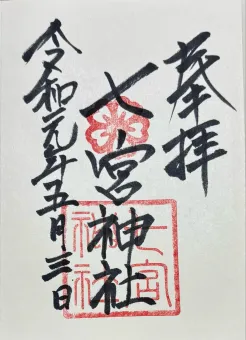 奉拝
七宮神社
七宮神社
令和元年五月三日